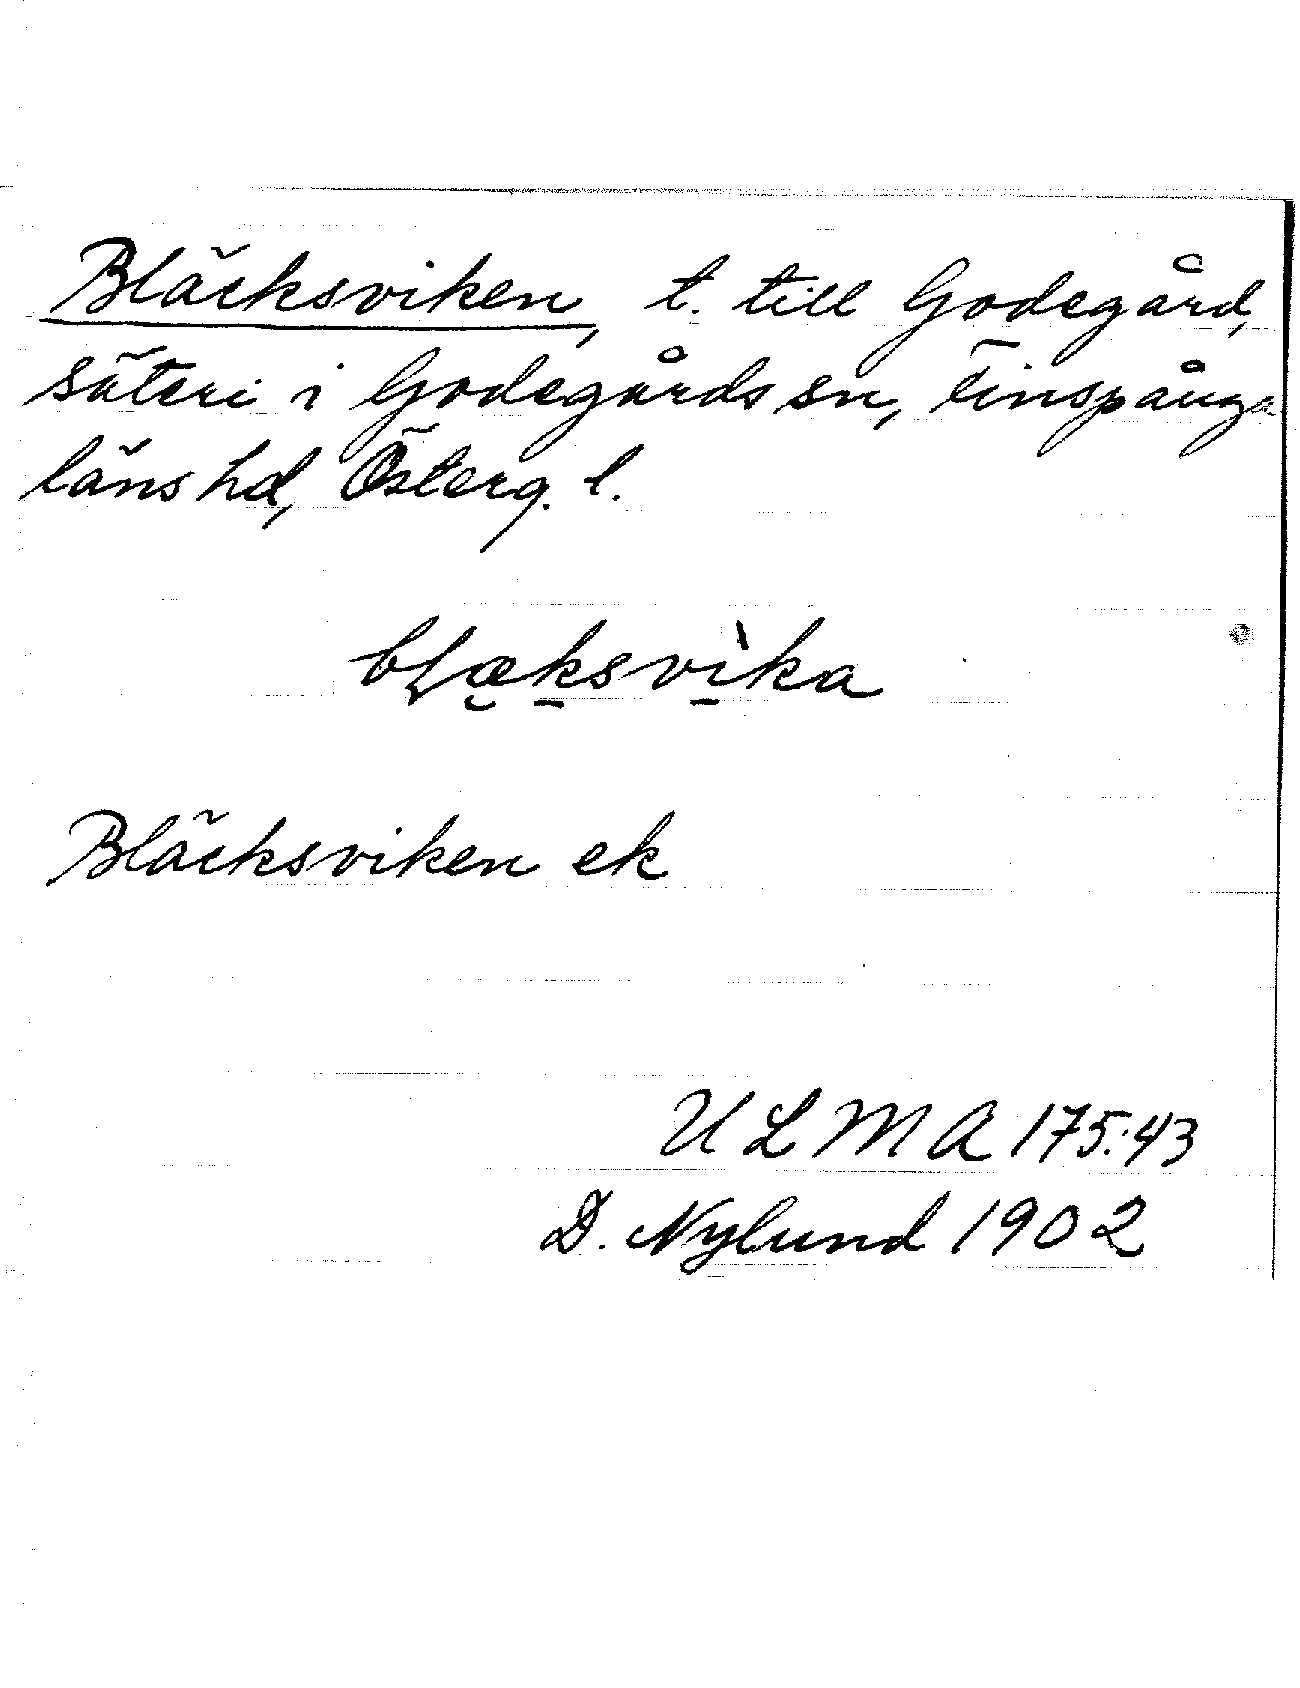 Bläcksviken, t. till Godegård,
säteri i Godegårds sn, Finspånga
läns hd, Österg. l.
bɽæ̨ksvìka
Bläcksviken ek
ULMA 175:43
D. Nylund 1902